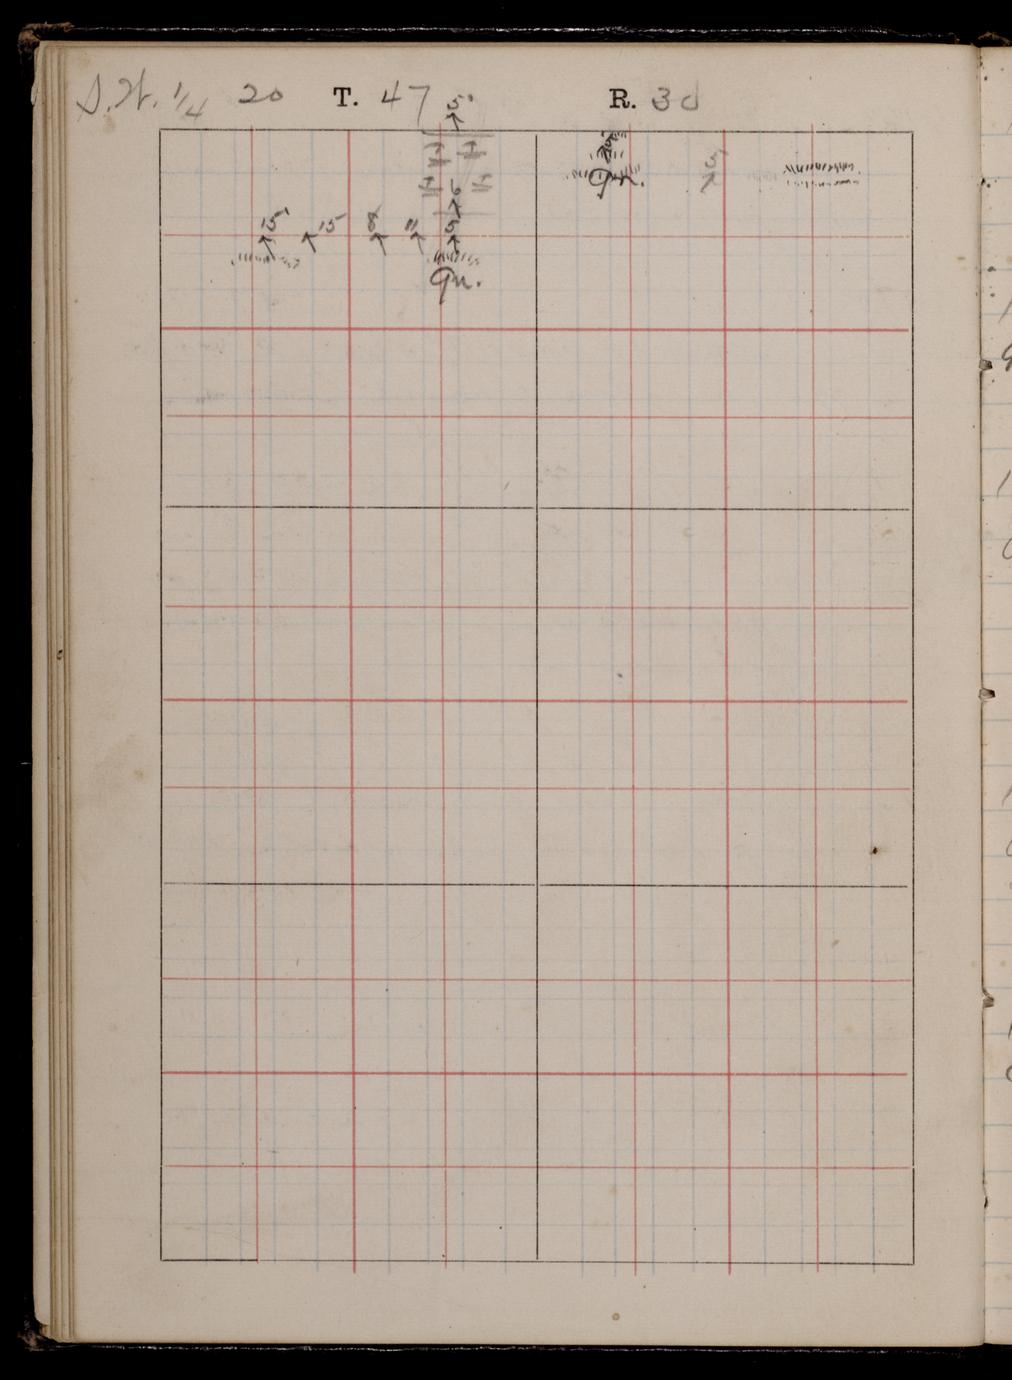 S.W. 1/4 20 T. 47 R. 30
5
5
5
6
15 15 8 11 5
Gn.